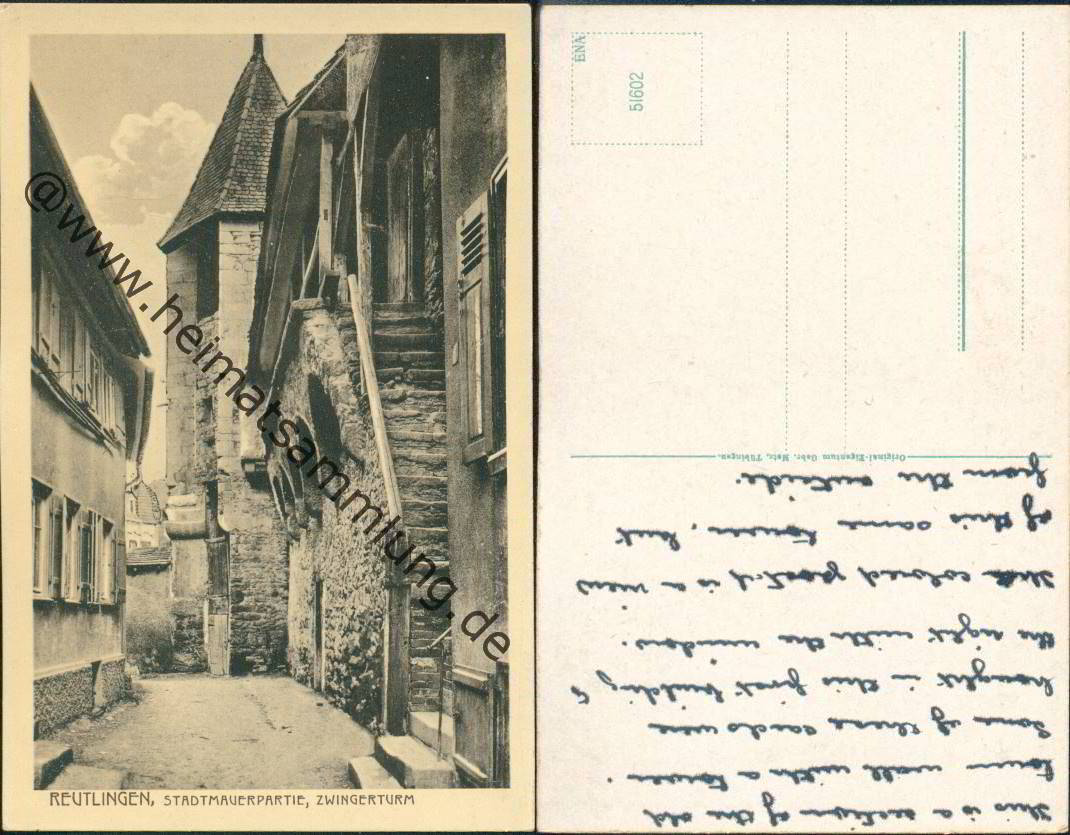 REUTLINGEN, STADTMAUERPARTIE, ZWINGERTURM
@www.heimatsammlung.de
ENA
51602
Original-Eigentum Gebr. Metz, Tübingen.
This is a section of the old
town wall with a tower.
Some of these cards were
bought in this first building
the right with the windows.
This colored postcard is a view
of this same tower, but
from the outside.